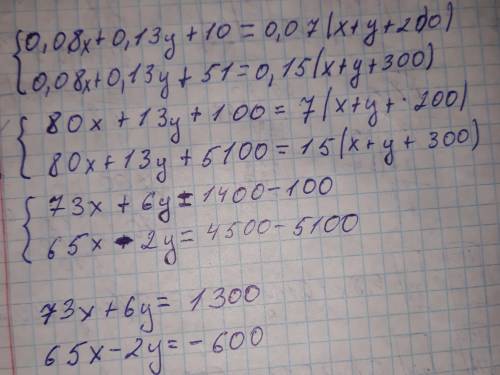 0,08x+0,13y+10=0,07(x+y+200)
0,08x+0,13y+51=0,15(x+y+300)
80x+13y+100=7(x+y+200)
80x+13y+5100=15(x+y+300)
73x+6y=1400-100
65x-2y=4500-5100
73x+6y=1300
65x-2y=-600